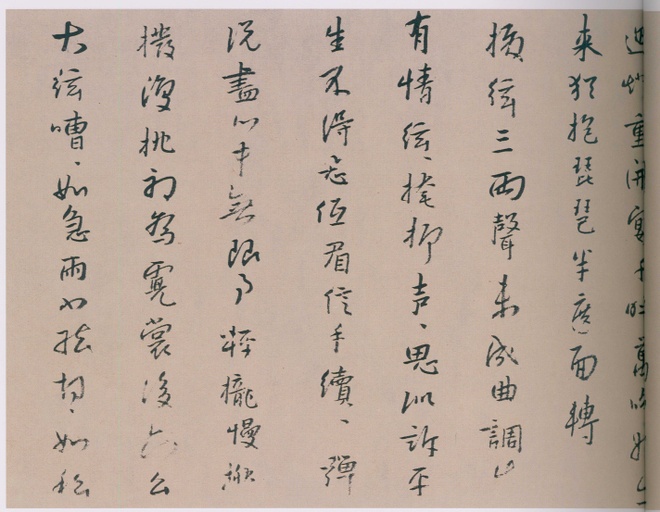 迴燈重開宴千呼萬喚始出
来猶抱琵琶半遮面轉
撥絃三兩聲未成曲調先
有情絃〻掩抑声〻思似訴平
生不得志低眉信手續〻彈
說盡心中無限事輕攏慢撚
撥復挑初為霓裳後六么
大絃嘈〻如急雨小絃切〻如私